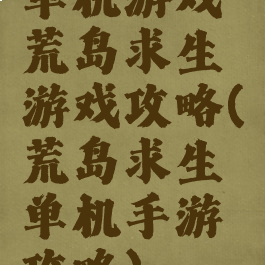 单机游戏
荒岛求生
游戏攻略(
荒岛求生
单机手游
攻略)